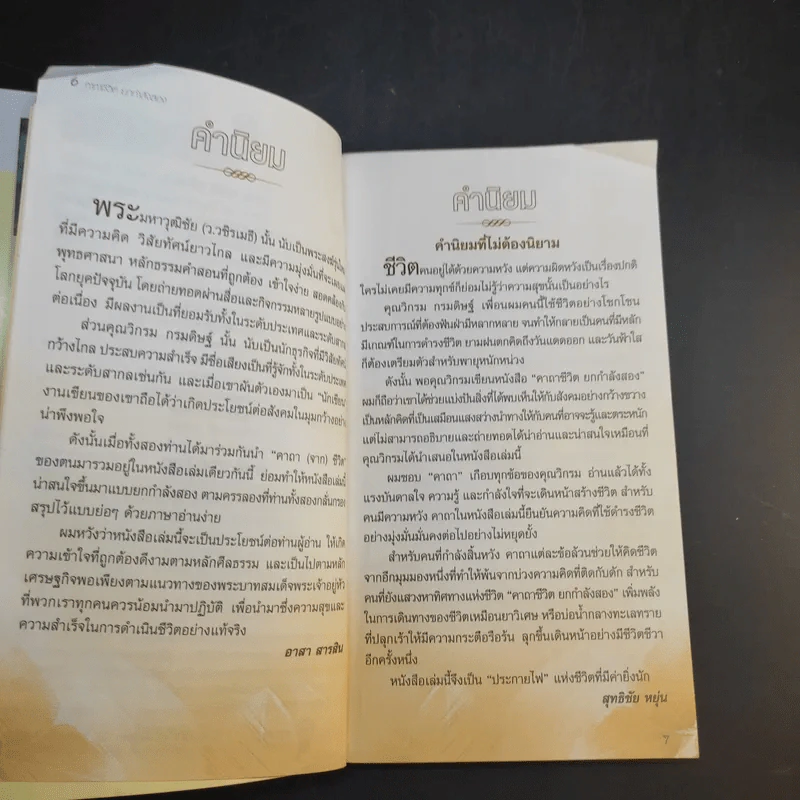 6 คาถาชีวิต ยกกำลังสอง
คำนิยม
พระมหาวุฒิชัย (ว.วชิรเมธี) นั้น นับเป็นพระสงฆ์รุ่นใหม่
ที่มีความคิด วิสัยทัศน์ยาวไกล และมีความมุ่งมั่นที่จะเผยแผ่
พุทธศาสนา หลักธรรมคำสอนที่ถูกต้อง เข้าใจง่าย สอดคล้องกับ
โลกยุคปัจจุบัน โดยถ่ายทอดผ่านสื่อและกิจกรรมหลายรูปแบบอย่าง
ต่อเนื่อง มีผลงานเป็นที่ยอมรับทั้งในระดับประเทศและระดับสากล
ส่วนคุณวิกรม กรมดิษฐ์ นั้น นับเป็นนักธุรกิจที่มีวิสัยทัศน์
กว้างไกล ประสบความสำเร็จ มีชื่อเสียงเป็นที่รู้จักทั้งในระดับประเทศ
และระดับสากลเช่นกัน และเมื่อเขาผันตัวเองมาเป็น "นักเขียน"
งานเขียนของเขาถือได้ว่าเกิดประโยชน์ต่อสังคมในมุมกว้างอย่าง
น่าพึงพอใจ
ดังนั้นเมื่อทั้งสองท่านได้มาร่วมกันนำ "คาถา (จาก) ชีวิต"
ของตนมารวมอยู่ในหนังสือเล่มเดียวกันนี้ ย่อมทำให้หนังสือเล่มนี้
น่าสนใจขึ้นมาแบบยกกำลังสอง ตามครรลองที่ท่านทั้งสองกลั่นกรอง
สรุปไว้แบบย่อๆ ด้วยภาษาอ่านง่าย
ผมหวังว่าหนังสือเล่มนี้จะเป็นประโยชน์ต่อท่านผู้อ่าน ให้เกิด
ความเข้าใจที่ถูกต้องดีงามตามหลักศีลธรรม และเป็นไปตามหลัก
เศรษฐกิจพอเพียงตามแนวทางของพระบาทสมเด็จพระเจ้าอยู่หัว
ที่พวกเราทุกคนควรน้อมนำมาปฏิบัติ เพื่อนำมาซึ่งความสุขและ
ความสำเร็จในการดำเนินชีวิตอย่างแท้จริง
อาสา สารสิน
คำนิยม
คำนิยมที่ไม่ต้องนิยาม
ชีวิตคนอยู่ได้ด้วยความหวัง แต่ความผิดหวังเป็นเรื่องปกติ
ใครไม่เคยมีความทุกข์ก็ย่อมไม่รู้ว่าความสุขนั้นเป็นอย่างไร
คุณวิกรม กรมดิษฐ์ เพื่อนผมคนนี้ใช้ชีวิตอย่างโชกโชน
ประสบการณ์ที่ต้องฟันฝ่ามีหลากหลาย จนทำให้กลายเป็นคนที่มีหลัก
มีเกณฑ์ในการดำรงชีวิต ยามฝนตกคิดถึงวันแดดออก และวันฟ้าใส
ก็ต้องเตรียมตัวสำหรับพายุหนักหน่วง
ดังนั้น พอคุณวิกรมเขียนหนังสือ "คาถาชีวิต ยกกำลังสอง"
ผมก็ถือว่าเขาได้ช่วยแบ่งปันสิ่งที่ได้พบเห็นให้กับสังคมอย่างกว้างขวาง
เป็นหลักคิดที่เป็นเสมือนแสงสว่างนำทางให้กับคนที่อาจจะรู้และตระหนัก
แต่ไม่สามารถอธิบายและถ่ายทอดได้น่าอ่านและน่าสนใจเหมือนที่
คุณวิกรมได้นำเสนอในหนังสือเล่มนี้
ผมชอบ "คาถา" เกือบทุกข้อของคุณวิกรม อ่านแล้วได้ทั้ง
แรงบันดาลใจ ความรู้ และกำลังใจที่จะเดินหน้าสร้างชีวิต สำหรับ
คนมีความหวัง คาถาในหนังสือเล่มนี้ยืนยันความคิดที่ใช้ดำรงชีวิต
อย่างมุ่งมั่นมั่นคงต่อไปอย่างไม่หยุดยั้ง
สำหรับคนที่กำลังสิ้นหวัง คาถาแต่ละข้อล้วนช่วยให้คิดชีวิต
จากอีกมุมมองหนึ่งที่ทำให้พ้นจากบ่วงความคิดที่ติดกับดัก สำหรับ
คนที่ยังแสวงหาทิศทางแห่งชีวิต "คาถาชีวิต ยกกำลังสอง" เพิ่มพลัง
ในการเดินทางของชีวิตเหมือนยาวิเศษ หรือบ่อน้ำกลางทะเลทราย
ที่ปลุกเร้าให้มีความกระตือรือร้น ลุกขึ้นเดินหน้าอย่างมีชีวิตชีวา
อีกครั้งหนึ่ง
หนังสือเล่มนี้จึงเป็น "ประกายไฟ" แห่งชีวิตที่มีค่ายิ่งนัก
สุทธิชัย หยุ่น
7